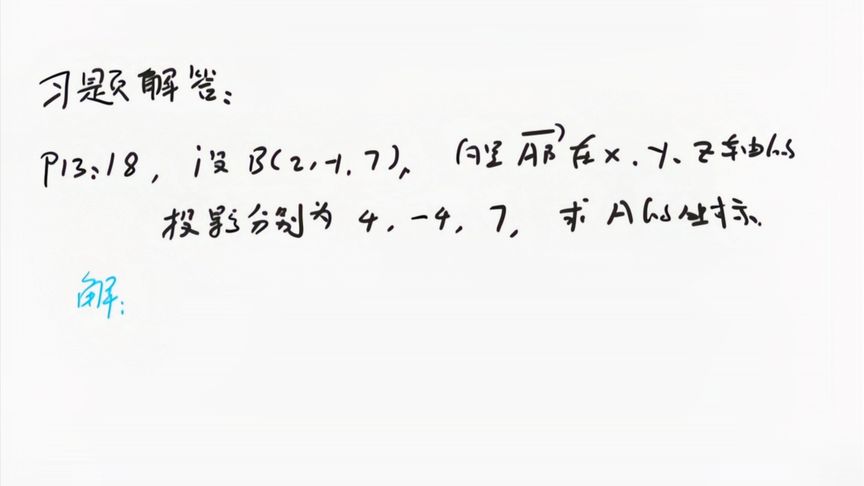 习题解答:
P13:18, 设 B(2,-1,7), 向量 $\overrightarrow{AB}$ 在 x、y、z 轴的
投影分别为 4, -4, 7, 求 A 的坐标.
解: